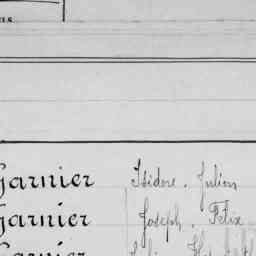 Garnier Isidore. Julien
Garnier Joseph. Félix
Garnier